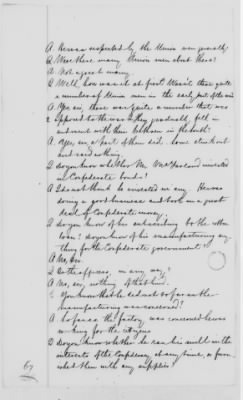 A He was respected by the Union men generally.
Q Were there many Union men about there?
A Not a great many.
Q Well, how was it at first? Wasn't there quite
a number of Union men in the early part of the war
A Yes sir, there was quite a number that was
opposed to the war
Q They gradually fell in
and went with their brethren in the South?
A Yes, sir, a part of them did. Some
and said nothing.
Q Do you know whether Mr. invested
in Confederate bonds?
A I do not think he invested in any. He was
doing a good business and took in a great
deal of Confederate money.
Q Do you know of his subscribing to the cotton
loan? Do you know of his manufacturing any
thing for the Confederate government?
A No, sir.
Q Or the officers, in any way?
A No, sir, nothing of that kind.
Q You know that he did not so far as the
manufacturing was concerned?
A So far as the factory was concerned he was
working for the citizens
Q Do you know whether he ran his mill in the
interests of the Confederacy, at any time, or furn-
ished them with any supplies?